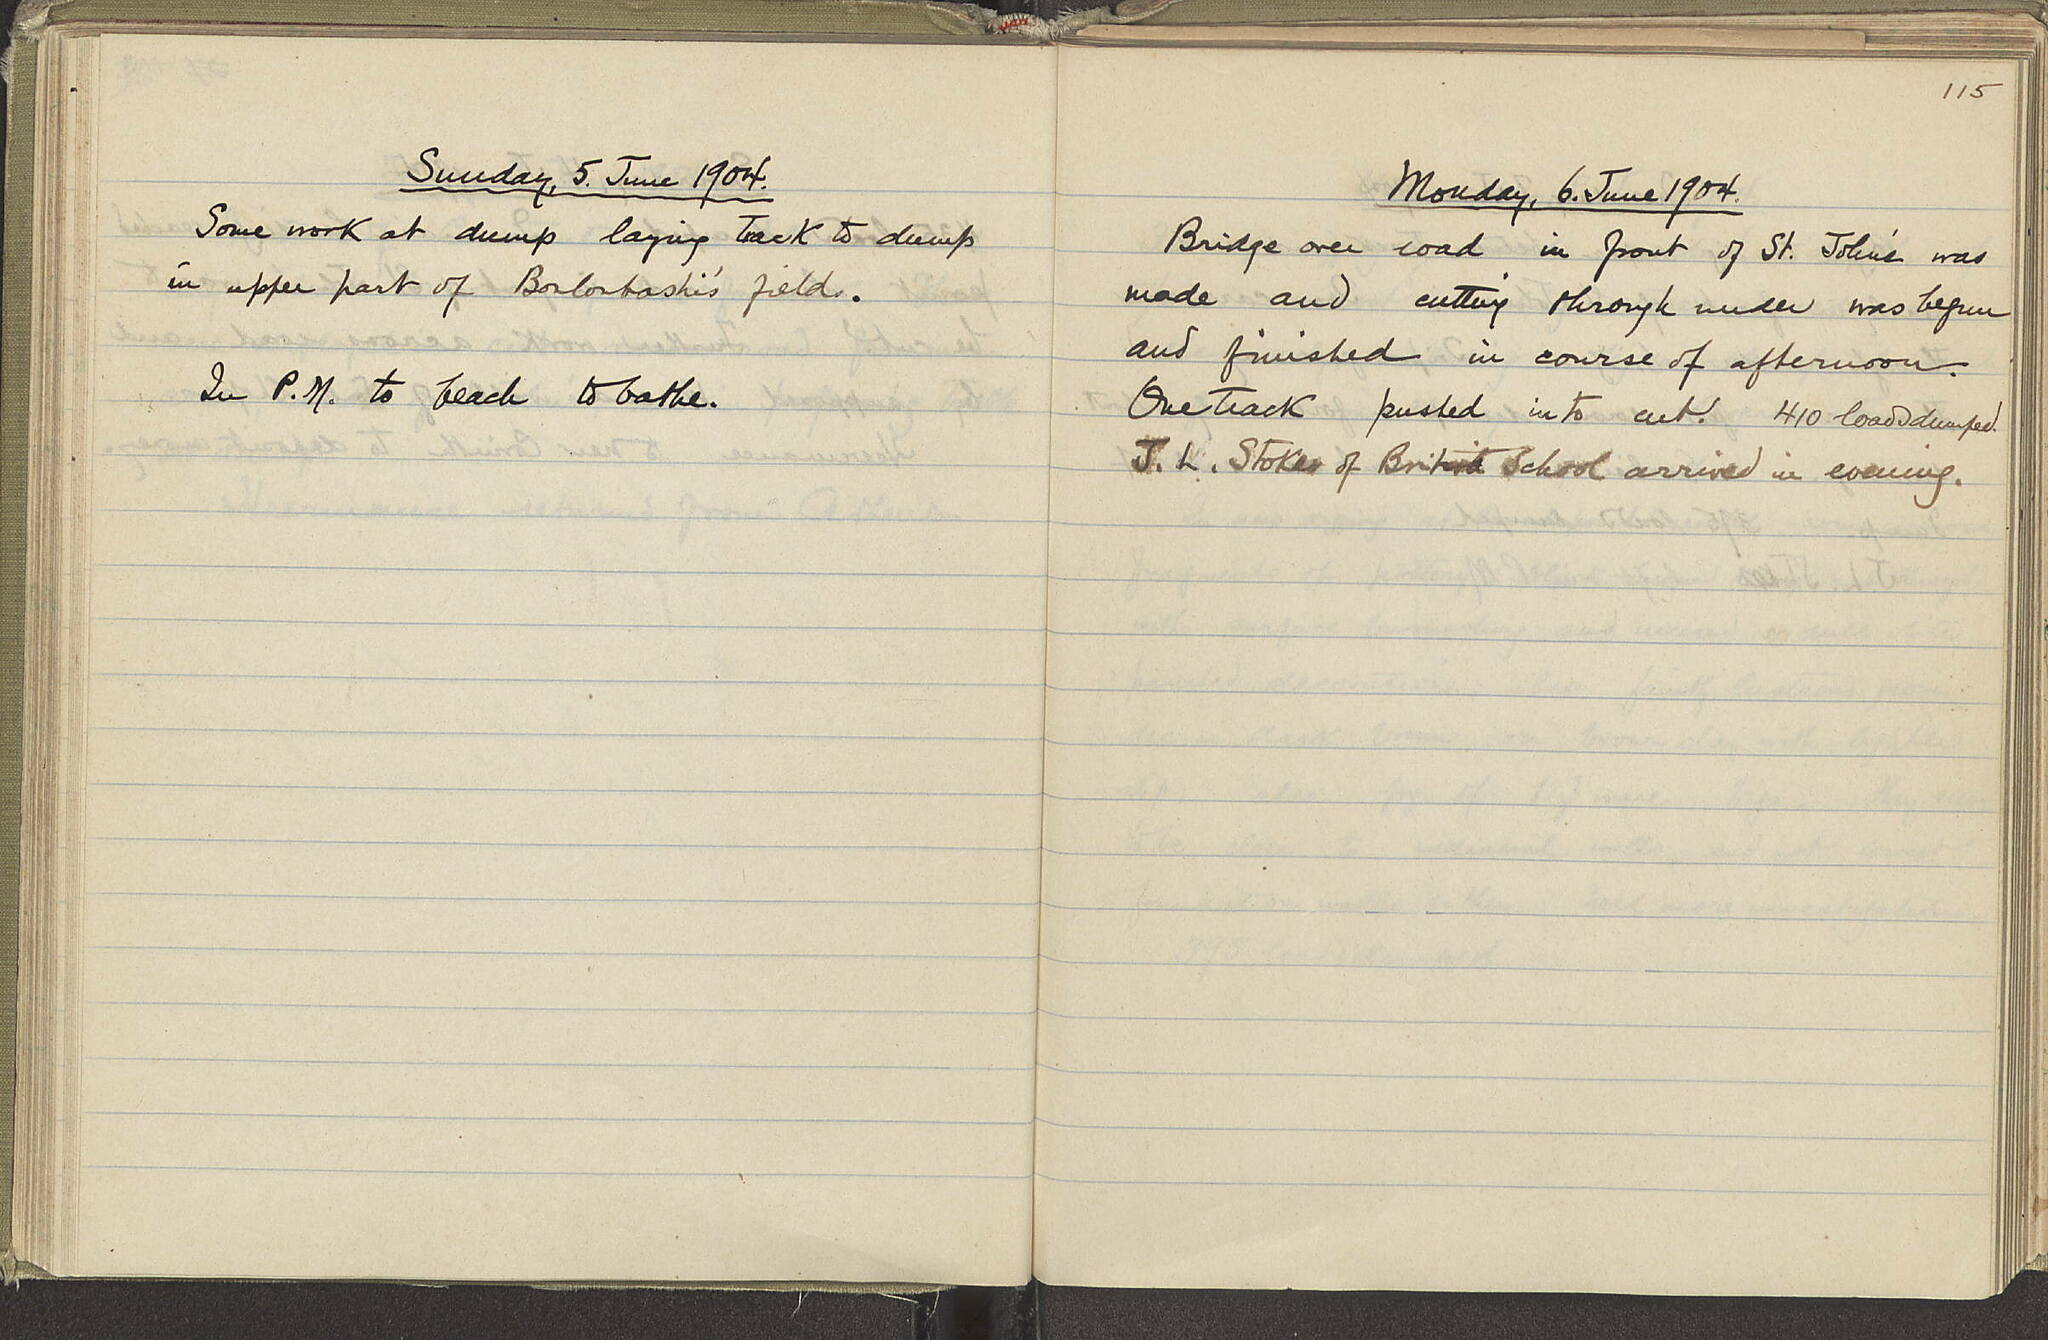 Sunday, 5. June 1904.
Some work at dump laying track to dump
in upper part of field.
In P.M. to beach to bathe.
115
Monday, 6. June 1904.
Bridge over road in front of St. John's was
made and cutting through under was begun
and finished in course of afternoon.
One track pushed into cut. 410 loads dumped.
J. L. Stokes of British School arrived in evening.